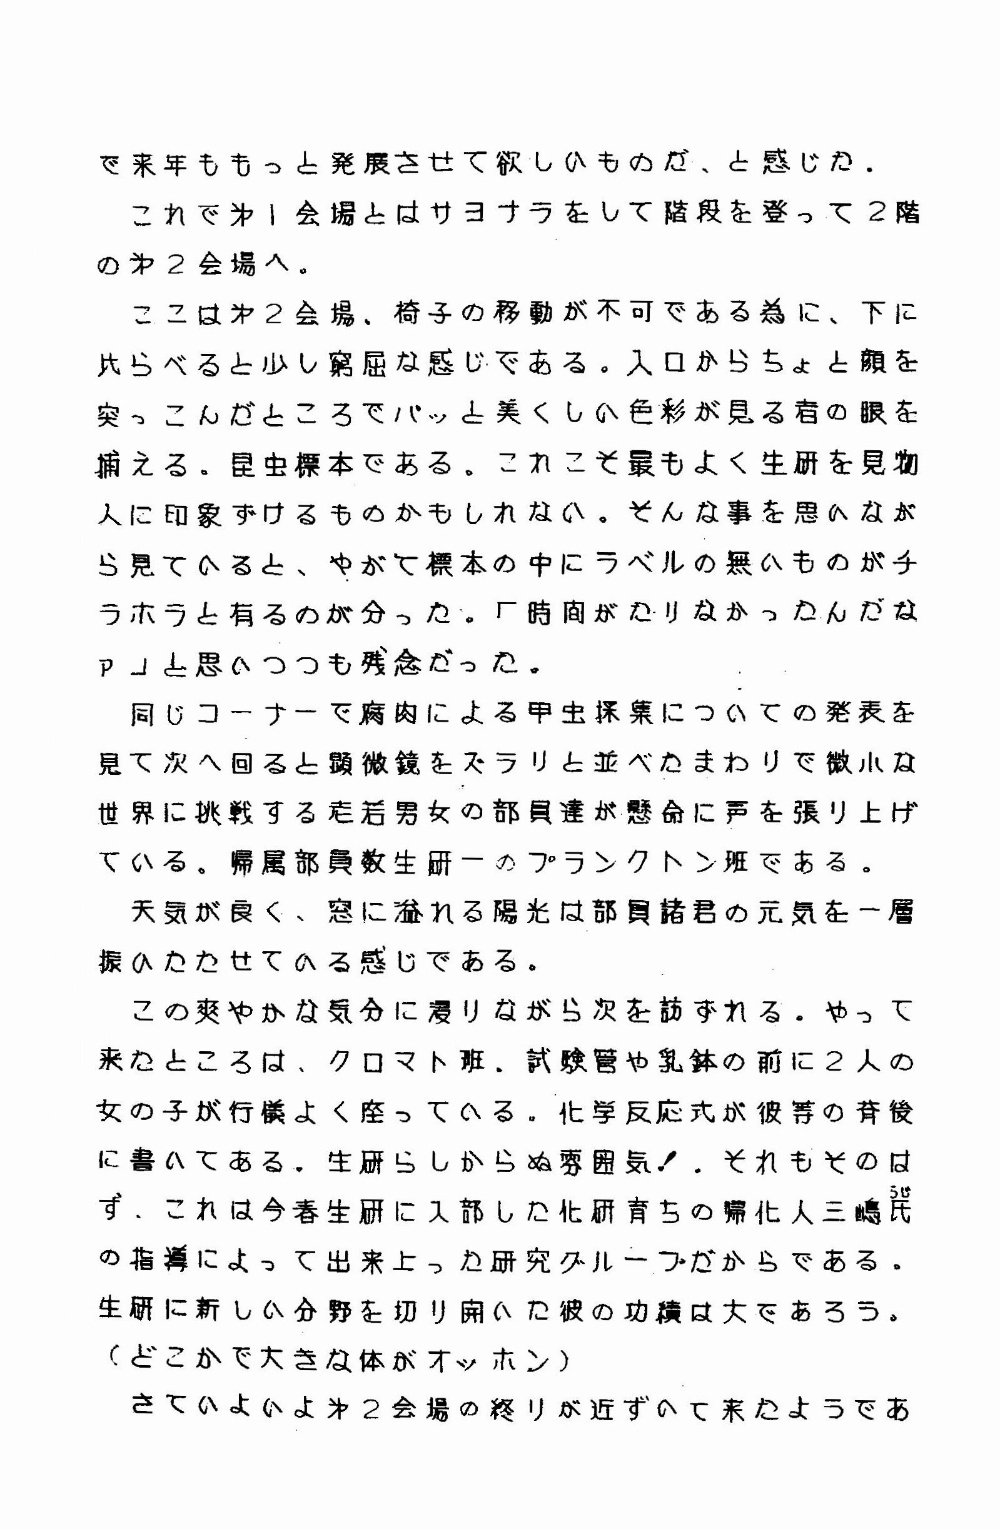 で来年ももっと発展させて欲しいものだ、と感じた．
これで才１会場とはサヨナラをして階段を登って２階
の才２会場へ。
ここは才２会場、椅子の移動が不可である為に、下に
比らべると少し窮屈な感じである。入口からちょと顔を
突っこんだところでパッと美くしい色彩が見る者の眼を
捕える。昆虫標本である。これこそ最もよく生研を見物
人に印象ずけるものかもしれない。そんな事を思いなが
ら見ていると、やがて標本の中にラベルの無いものがチ
ラホラと有るのが分った。「時間がたりなかったんだな
ア」と思いつつも残念だった。
同じコーナーで腐肉による甲虫採集についての発表を
見て次へ回ると顕微鏡をズラリと並べたまわりで微小な
世界に挑戦する老若男女の部員達が懸命に声を張り上げ
ている。帰属部員数生研一のプランクトン班である。
天気が良く、窓に溢れる陽光は部員諸君の元気を一層
振いたたせている感じである。
この爽やかな気分に浸りながら次を訪ずれる．やって
来たところは、クロマト班．試験管や乳鉢の前に２人の
女の子が行儀よく座っている。化学反応式が彼等の背後
に書いてある．生研らしからぬ雰囲気！．それもそのは
ず、これは今春生研に入部した化研育ちの帰化人三嶋氏（うじ）
の指導によって出来上った研究グループだからである．
生研に新しい分野を切り開いた彼の功績は大であろう。
（どこかで大きな体がオッホン）
さていよいよ才２会場の終りが近ずいて来たようであ